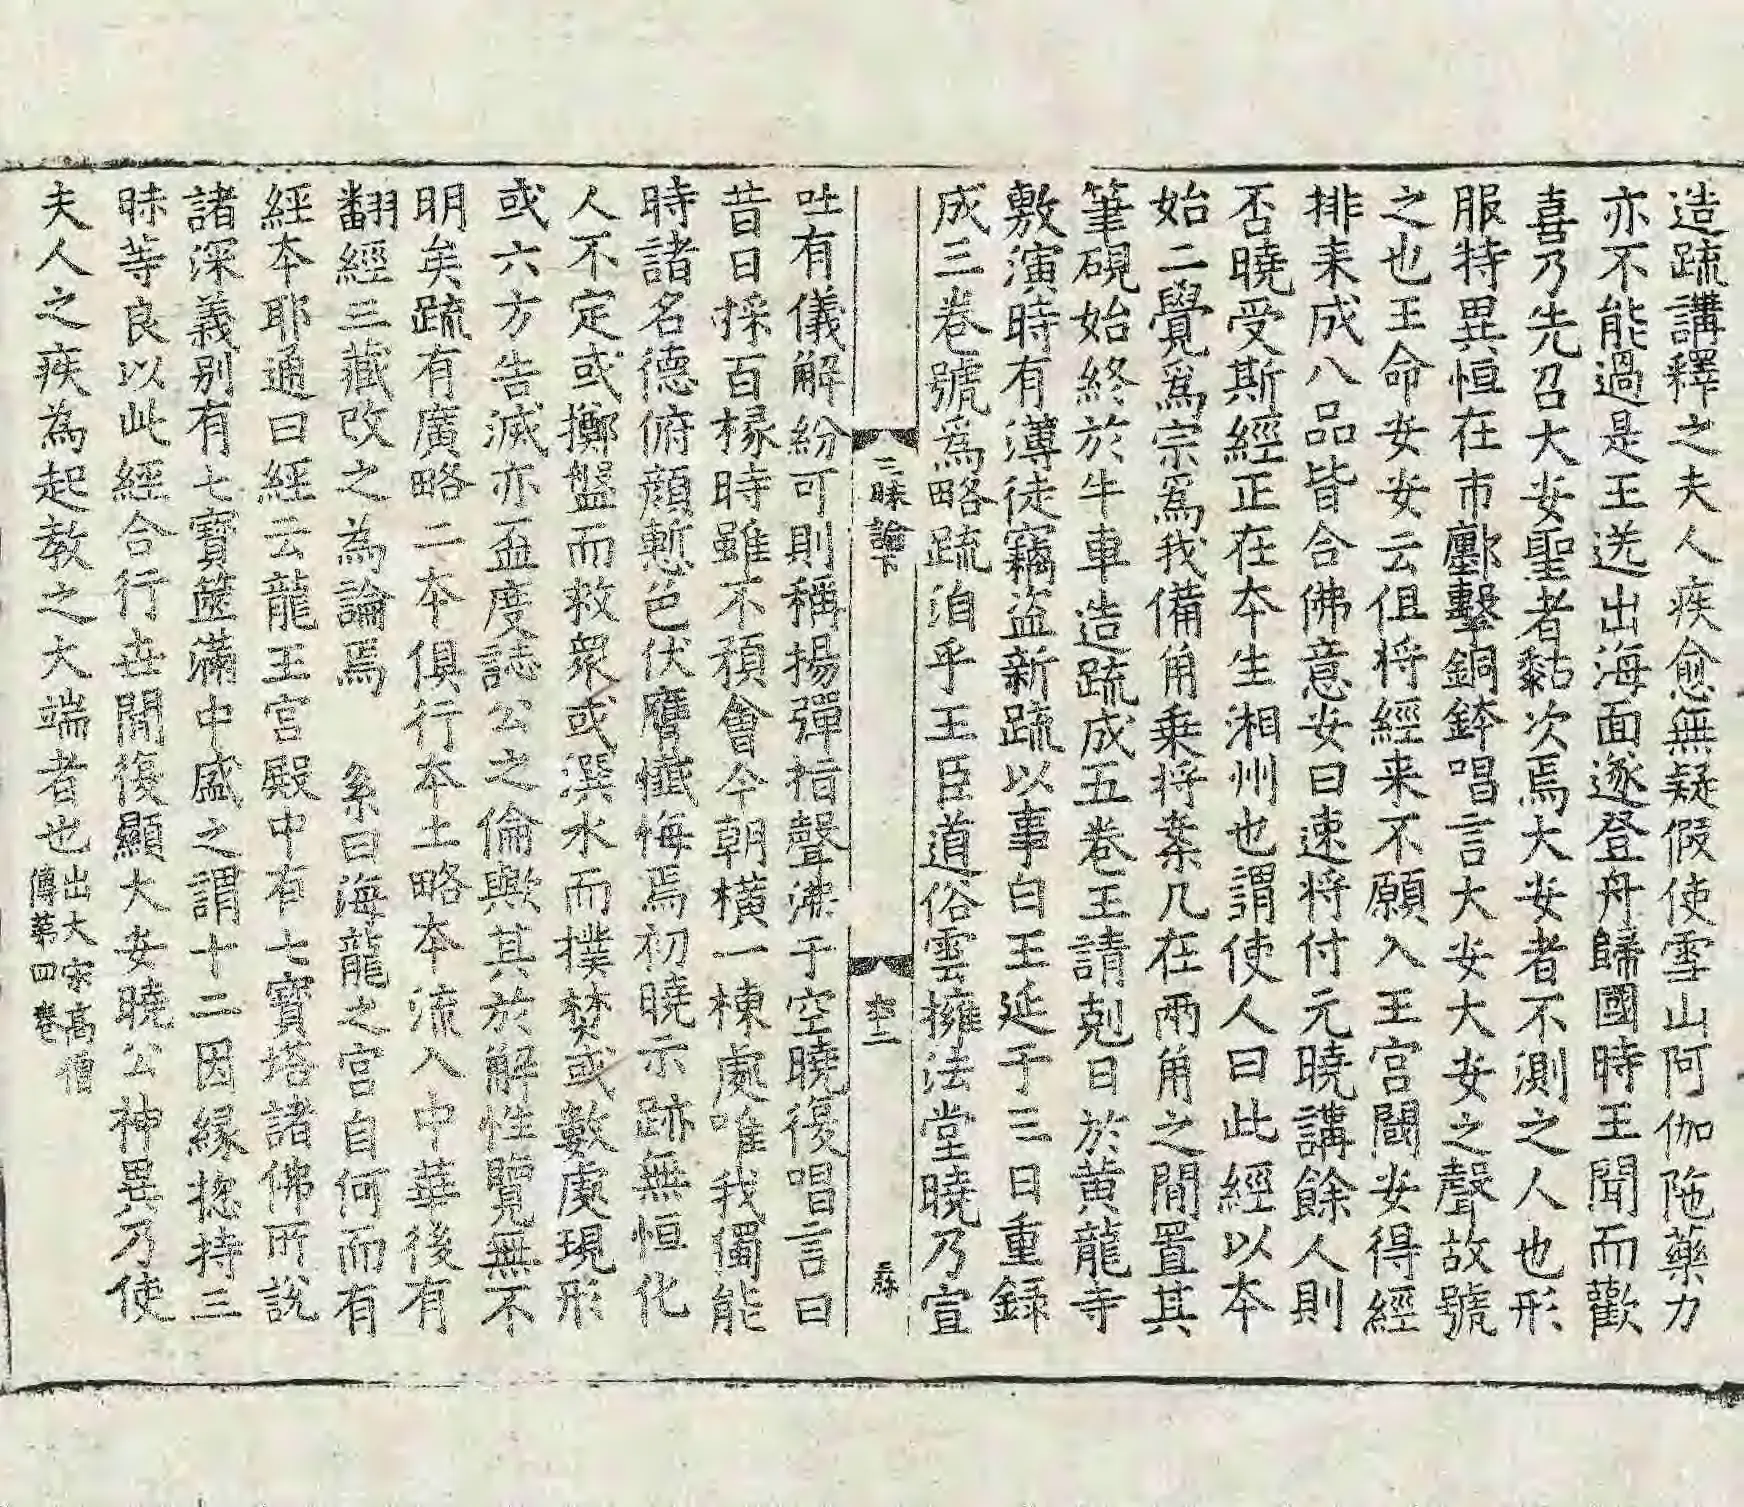 造疏講釋之夫人疾愈無疑假使雪山阿伽陁藥力
亦不能過是王送出海面遂登舟歸國時王聞而歡
喜乃先召大安聖者黏次焉大安者不測之人也形
服特異恒在市鄽擊銅鉢唱言大安大安之聲故號
之也王命安安云但将經来不願入王宫閾安得經
排来成八品皆合佛意安曰速将付元曉講餘人則
否曉受斯經正在本生湘州也謂使人曰此經以本
始二覺爲宗爲我備角乗将案几在兩角之間置其
筆硯始終於牛車造疏成五卷王請剋日於黄龍寺
敷演時有薄徒竊盗新疏以事白王延于三日重録
成三卷號爲略疏洎乎王臣道俗雲擁法堂曉乃宣
三昧論下
吐有儀解紛可則稱揚彈指聲沸于空曉復唱言曰
昔日採百椽時雖不預會今朝横一棟處唯我獨能
時諸名德俯顔慙色伏膺懺悔焉初曉示跡無恒化
人不定或擲盤而救衆或潠水而撲焚或數處現形
或六方告滅亦盃度誌公之倫歟其於解性覽無不
明矣疏有廣略二本俱行本土略本流入中華後有
翻經三藏改之為論焉　系曰海龍之宫自何而有
經本耶通曰經云龍王宫殿中有七寶塔諸佛所說
諸深義别有七寶篋滿中盛之謂十二因縁揔持三
昧等良以此經合行丗間復顯大安曉公神異乃使
夫人之疾為起教之大端者也出大宋高僧
傳第四卷